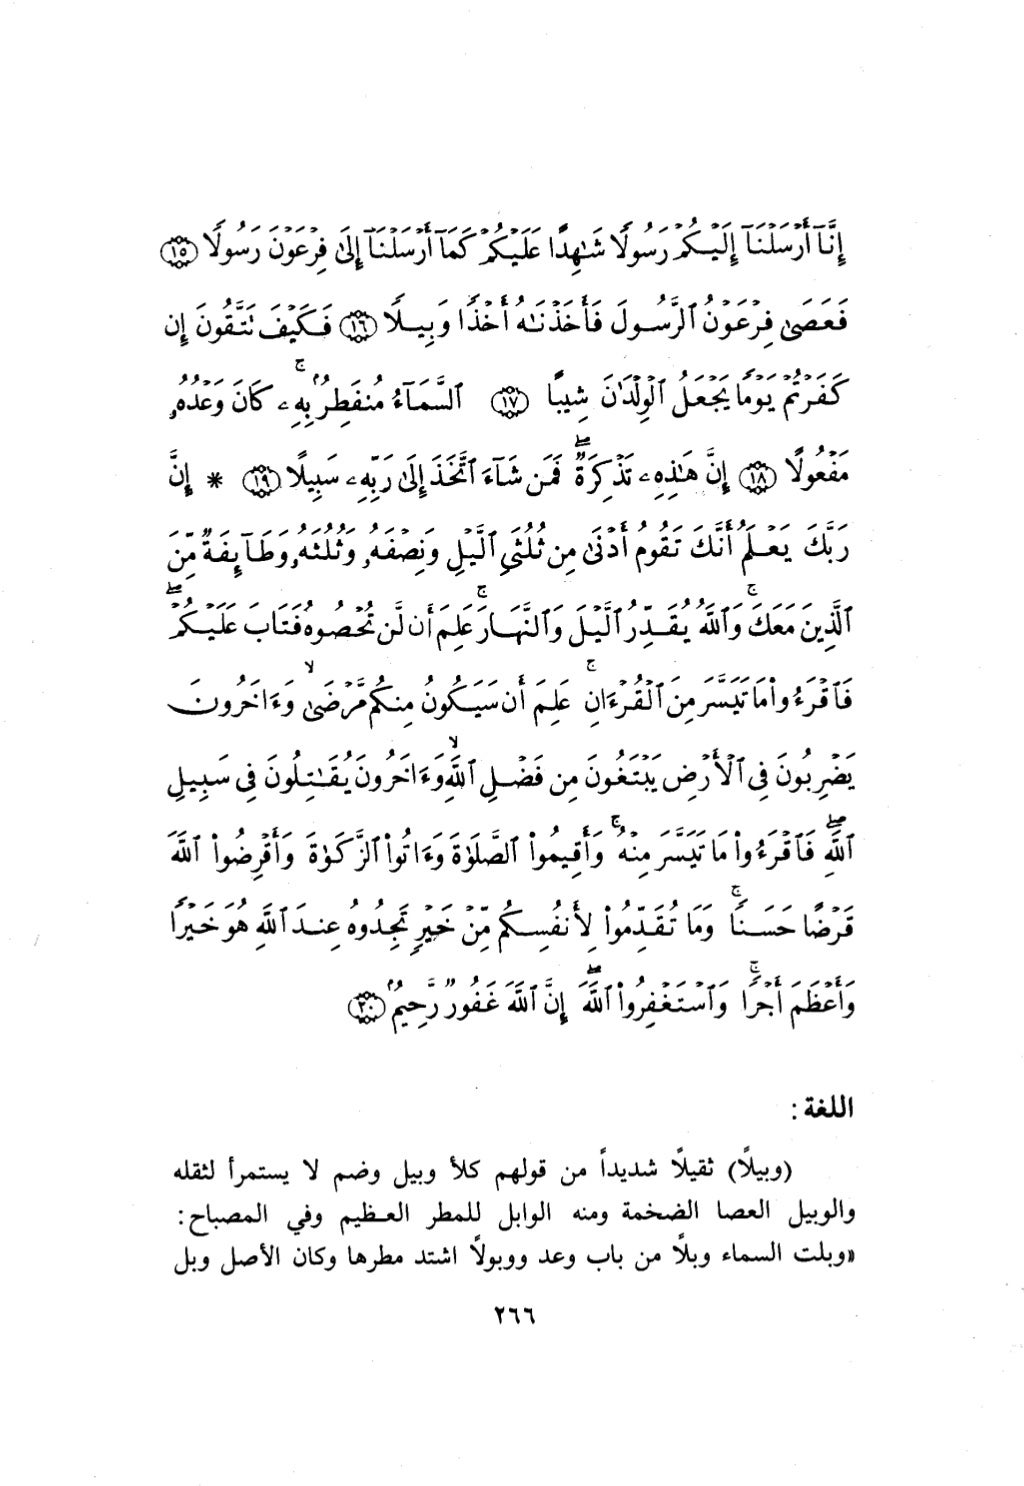 إِنَّآ أَرْسَلْنَآ إِلَيْكُمْ رَسُولًا شَـٰهِدًا عَلَيْكُمْ كَمَآ أَرْسَلْنَآ إِلَىٰ فِرْعَوْنَ رَسُولًا ١٥
فَعَصَىٰ فِرْعَوْنُ ٱلرَّسُولَ فَأَخَذْنَـٰهُ أَخْذًا وَبِيلًا ١٦ فَكَيْفَ تَتَّقُونَ إِن
كَفَرْتُمْ يَوْمًا يَجْعَلُ ٱلْوِلْدَٰنَ شِيبًا ١٧ ٱلسَّمَآءُ مُنفَطِرٌۢ بِهِۦۚ كَانَ وَعْدُهُۥ
مَفْعُولًا ١٨ إِنَّ هَـٰذِهِۦ تَذْكِرَةٌۖ فَمَن شَآءَ ٱتَّخَذَ إِلَىٰ رَبِّهِۦ سَبِيلًا ١٩ * إِنَّ
رَبَّكَ يَعْلَمُ أَنَّكَ تَقُومُ أَدْنَىٰ مِن ثُلُثَىِ ٱلَّيْلِ وَنِصْفَهُۥ وَثُلُثَهُۥ وَطَآئِفَةٌ مِّنَ
ٱلَّذِينَ مَعَكَۚ وَٱللَّهُ يُقَدِّرُ ٱلَّيْلَ وَٱلنَّهَارَۚ عَلِمَ أَن لَّن تُحْصُوهُ فَتَابَ عَلَيْكُمْۖ
فَٱقْرَءُوا۟ مَا تَيَسَّرَ مِنَ ٱلْقُرْءَانِۚ عَلِمَ أَن سَيَكُونُ مِنكُم مَّرْضَىٰۙ وَءَاخَرُونَ
يَضْرِبُونَ فِى ٱلْأَرْضِ يَبْتَغُونَ مِن فَضْلِ ٱللَّهِۙ وَءَاخَرُونَ يُقَـٰتِلُونَ فِى سَبِيلِ
ٱللَّهِۖ فَٱقْرَءُوا۟ مَا تَيَسَّرَ مِنْهُۚ وَأَقِيمُوا۟ ٱلصَّلَوٰةَ وَءَاتُوا۟ ٱلزَّكَوٰةَ وَأَقْرِضُوا۟ ٱللَّهَ
قَرْضًا حَسَنًاۚ وَمَا تُقَدِّمُوا۟ لِأَنفُسِكُم مِّنْ خَيْرٍ تَجِدُوهُ عِندَ ٱللَّهِ هُوَ خَيْرًا
وَأَعْظَمَ أَجْرًاۚ وَٱسْتَغْفِرُوا۟ ٱللَّهَۖ إِنَّ ٱللَّهَ غَفُورٌ رَّحِيمٌۢ ٢٠
اللغة :
(وبيلًا) ثقيلًا شديداً من قولهم كلأ وبيل وضم لا يستمرأ لثقله
والوبيل العصا الضخمة ومنه الوابل للمطر العظيم وفي المصباح :
«وبلت السماء وبلًا من باب وعد ووبولًا اشتد مطرها وكان الأصل وبل
٢٦٦